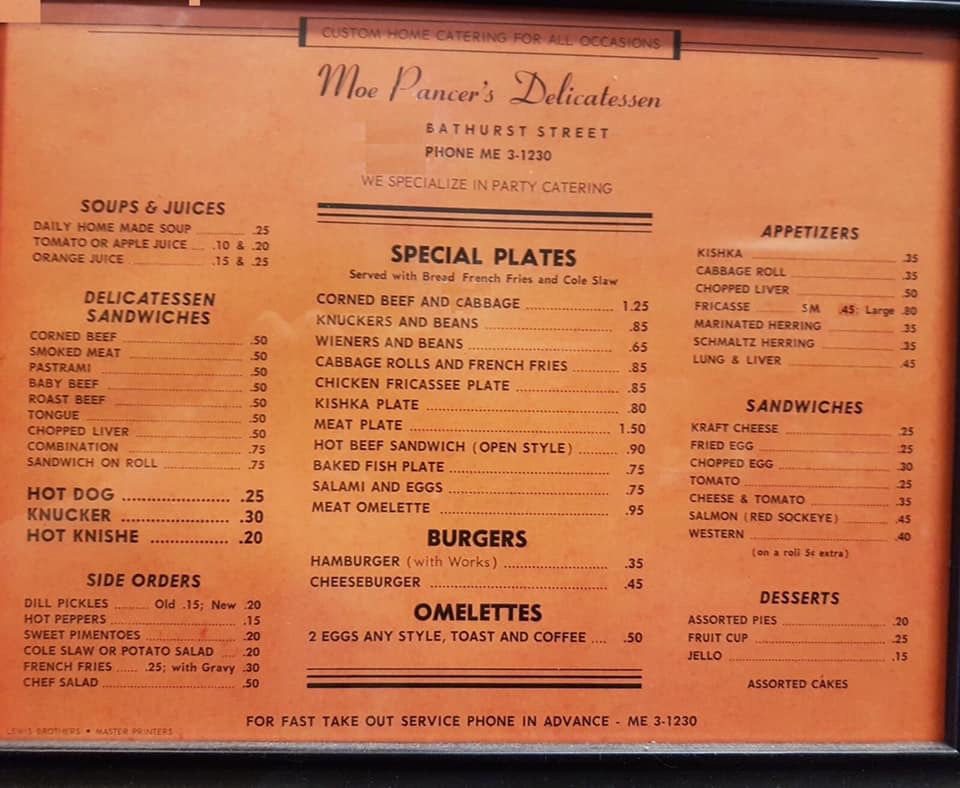 CUSTOM HOME CATERING FOR ALL OCCASIONS
Moe Pancer's Delicatessen
BATHURST STREET
PHONE ME 3-1230
WE SPECIALIZE IN PARTY CATERING
SOUPS & JUICES
DAILY HOME MADE SOUP .25
TOMATO OR APPLE JUICE .10 & .20
ORANGE JUICE .15 & .25
DELICATESSEN
SANDWICHES
CORNED BEEF .50
SMOKED MEAT .50
PASTRAMI .50
BABY BEEF .50
ROAST BEEF .50
TONGUE .50
CHOPPED LIVER .50
COMBINATION .75
SANDWICH ON ROLL .75
HOT DOG .25
KNUCKER .30
HOT KNISHE .20
SIDE ORDERS
DILL PICKLES Old .15; New .20
HOT PEPPERS .15
SWEET PIMENTOES .20
COLE SLAW OR POTATO SALAD .20
FRENCH FRIES .25; with Gravy .30
CHEF SALAD .50
SPECIAL PLATES
Served with Bread French Fries and Cole Slaw
CORNED BEEF AND CABBAGE 1.25
KNUCKERS AND BEANS .85
WIENERS AND BEANS .65
CABBAGE ROLLS AND FRENCH FRIES .85
CHICKEN FRICASSEE PLATE .85
KISHKA PLATE .80
MEAT PLATE 1.50
HOT BEEF SANDWICH (OPEN STYLE) .90
BAKED FISH PLATE .75
SALAMI AND EGGS .75
MEAT OMELETTE .95
BURGERS
HAMBURGER (with Works) .35
CHEESEBURGER .45
OMELETTES
2 EGGS ANY STYLE, TOAST AND COFFEE .50
APPETIZERS
KISHKA .35
CABBAGE ROLL .35
CHOPPED LIVER .50
FRICASSE SM .45; Large .80
MARINATED HERRING .35
SCHMALTZ HERRING .35
LUNG & LIVER .45
SANDWICHES
KRAFT CHEESE .25
FRIED EGG .25
CHOPPED EGG .30
TOMATO .25
CHEESE & TOMATO .35
SALMON (RED SOCKEYE) .45
WESTERN .40
(on a roll 5¢ extra)
DESSERTS
ASSORTED PIES .20
FRUIT CUP .25
JELLO .15
ASSORTED CAKES
FOR FAST TAKE OUT SERVICE PHONE IN ADVANCE - ME 3-1230
LEWIS BROTHERS • MASTER PRINTERS